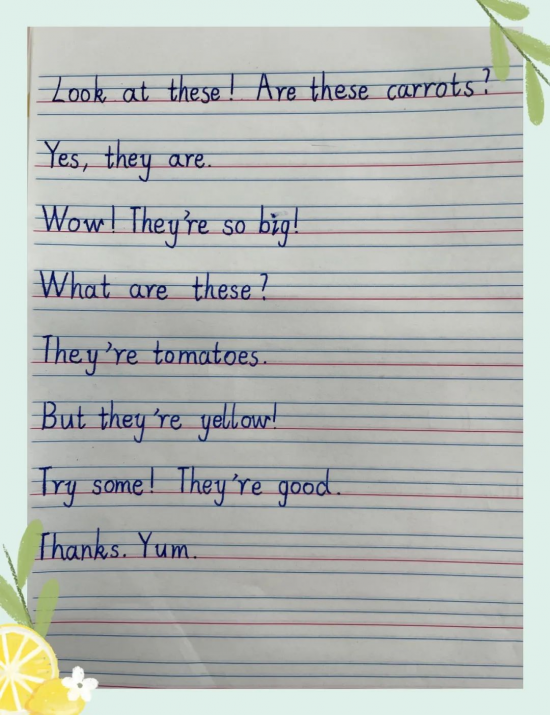 Look at these! Are these carrots?
Yes, they are.
Wow! They're so big!
What are these?
They're tomatoes.
But they're yellow!
Try some! They're good.
Thanks. Yum.